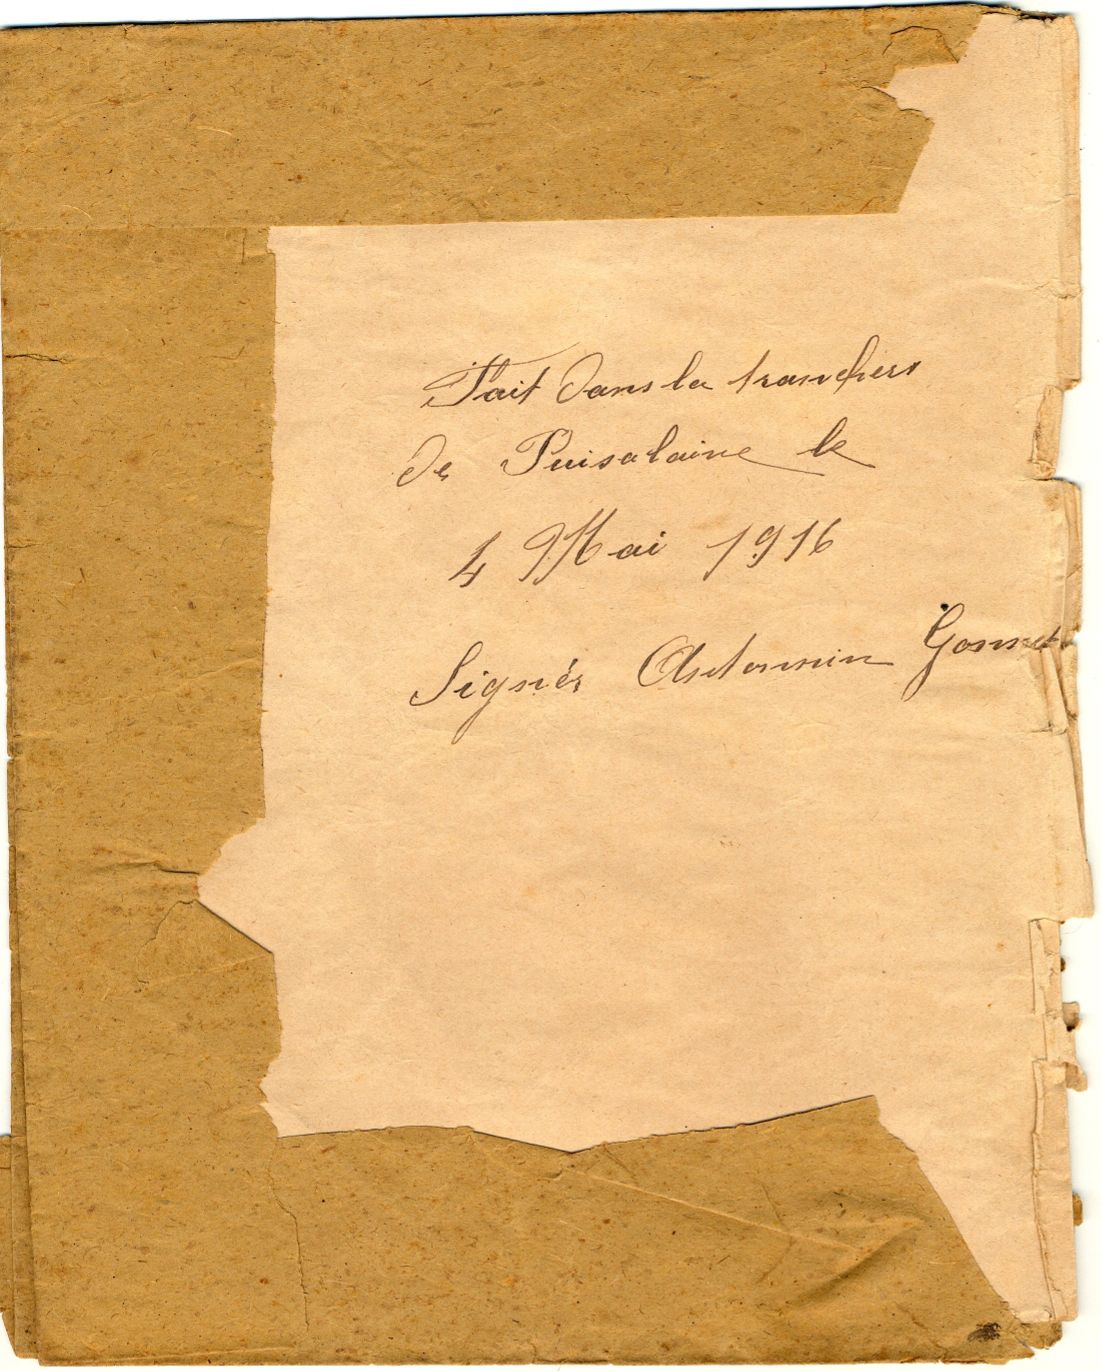 Fait dans la tranchere
de Puisalaine le
4 Mai 1916
Signés Antonnin Gonnet